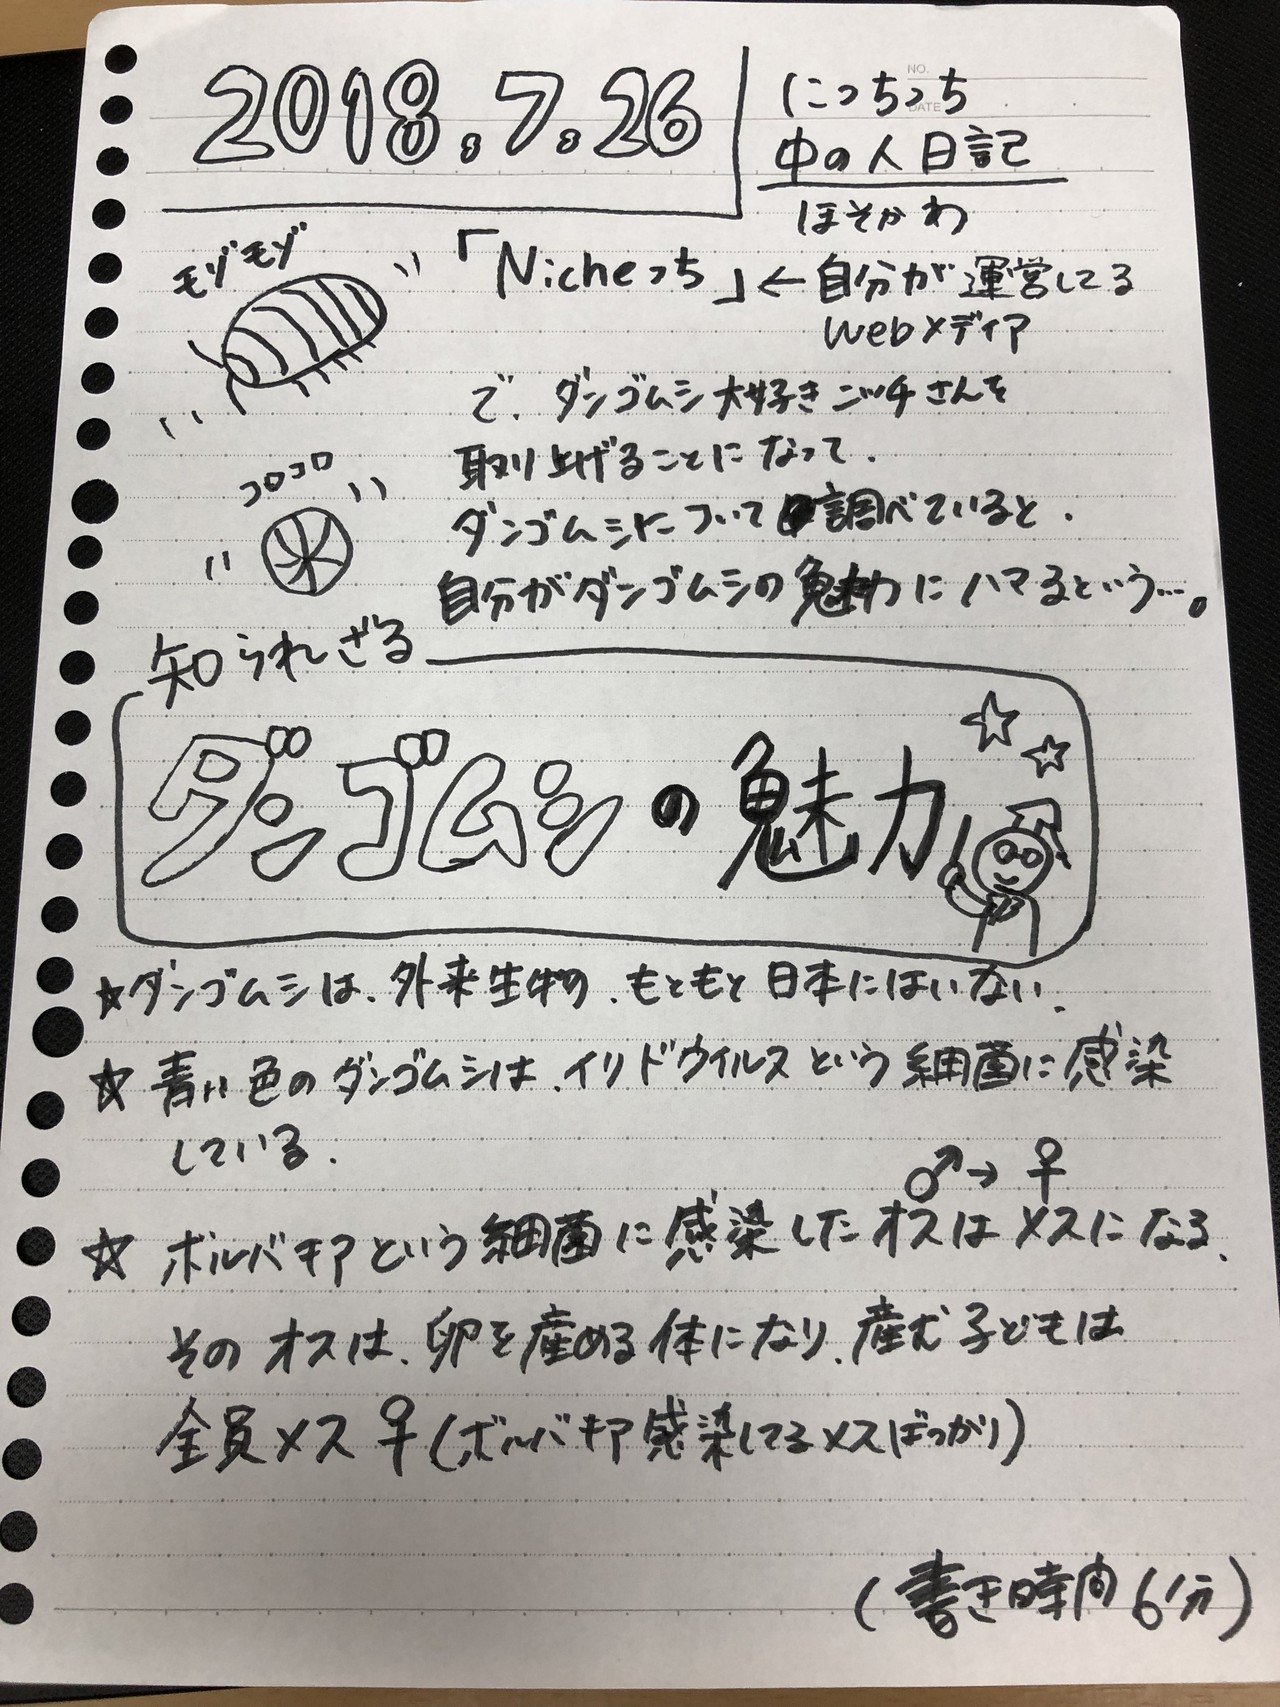 2018.7.26
NO.
DATE
にっちっち
中の人日記
ほそかわ
モゾモゾ
「Nicheっち」←自分が運営してる
Webメディア
で、ダンゴムシ大好きニッチさんを
取り上げることになって、
コロコロ
ダンゴムシについて調べていると、
自分がダンゴムシの魅力にハマるという…。
知られざる
ダンゴムシの魅力
☆ダンゴムシは、外来生物、もともと日本にはいない、
☆青い色のダンゴムシは、イリドウイルスという細菌に感染
している、
♂→♀
☆ボルバキアという細菌に感染したオスはメスになる、
そのオスは、卵を産める体になり、産む子どもは
全員メス♀(ボルバキア感染してるメスばっかり)
(書き時間6分)